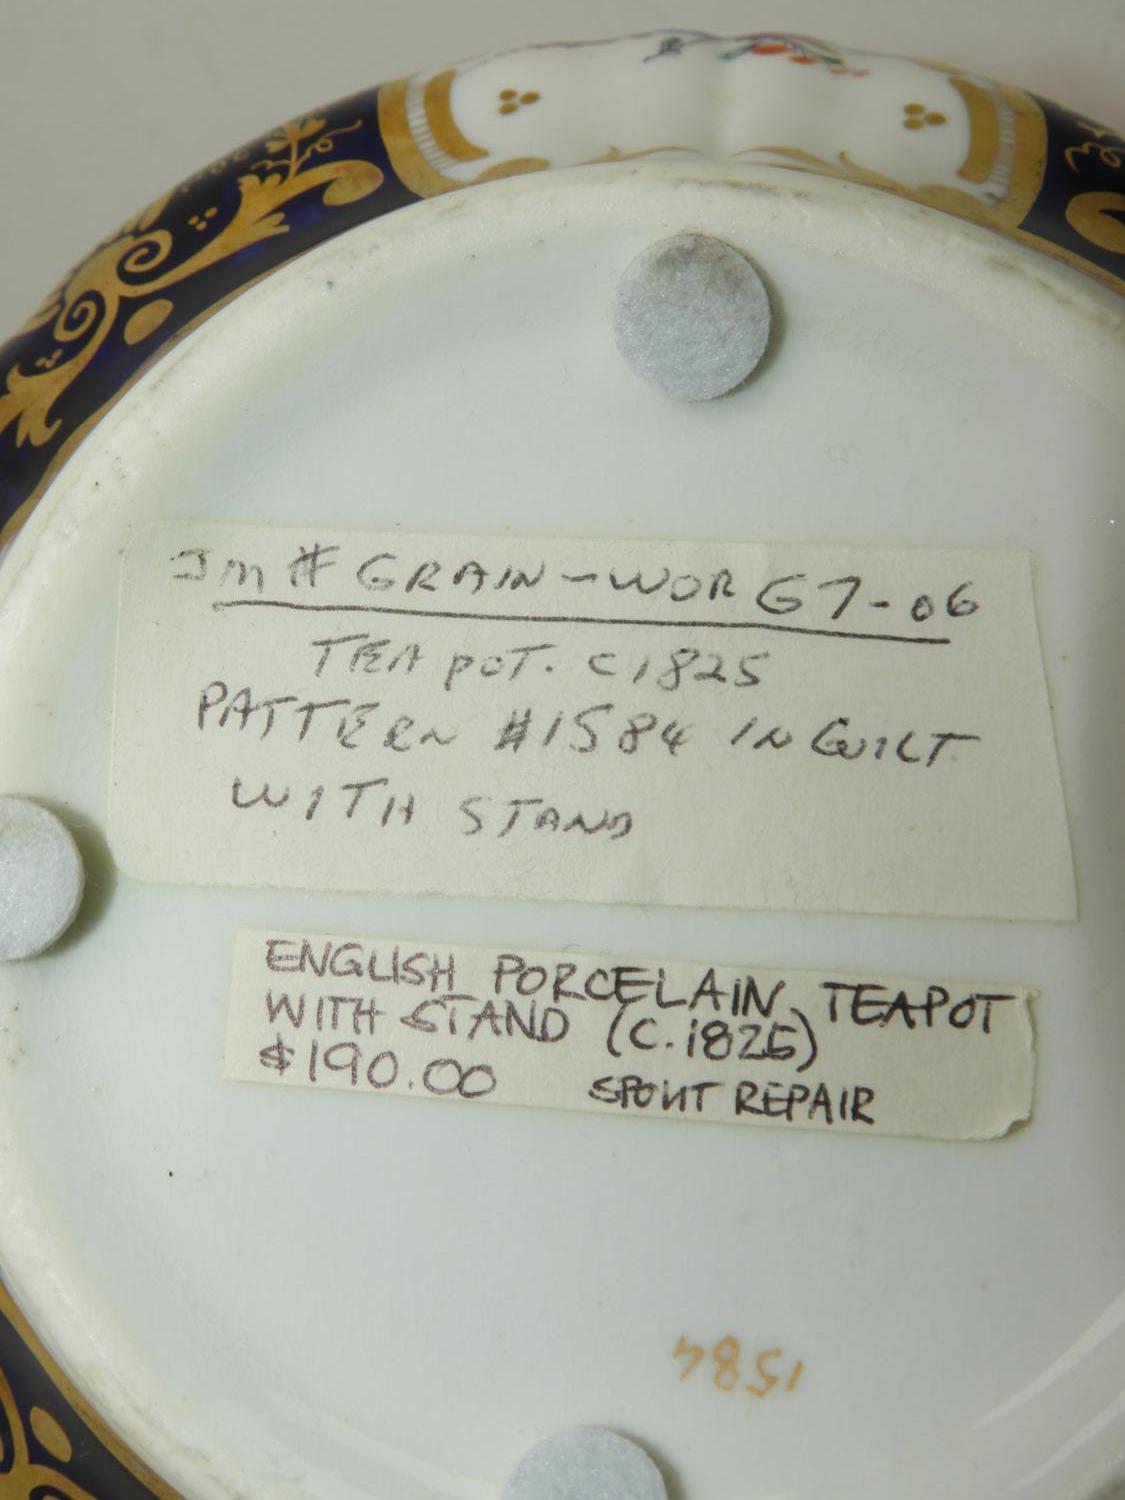 Jm # GRAIN-WOR G7-06
TEAPOT. C1825
PATTERN #1584 IN GUILT.
WITH STAND
ENGLISH PORCELAIN TEAPOT
WITH STAND (C.1825)
$190.00 SPOUT REPAIR
1584